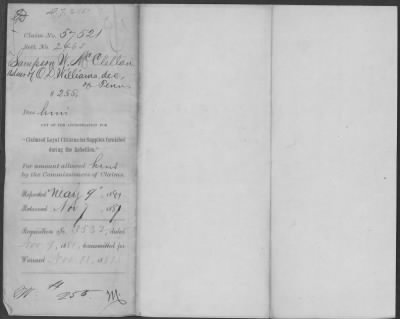 Claim No. 57521
Sett. No. 2465
Sampson W. McClellan
Adms of O D Williams, dec.
of Tenn
$ 255.
Due him
OUT OF THE APPROPRIATION FOR
"Claims of Loyal Citizens for Supplies furnished
during the Rebellion."
For amount allowed him
by the Commissioners of Claims.
Reported May 9", 1881
Returned Nov 7, 1881
Requisition No. 8532, dated
Nov 9, 1881, transmitted for
Warrant Nov. 11, 1881
W. $ 255 M.